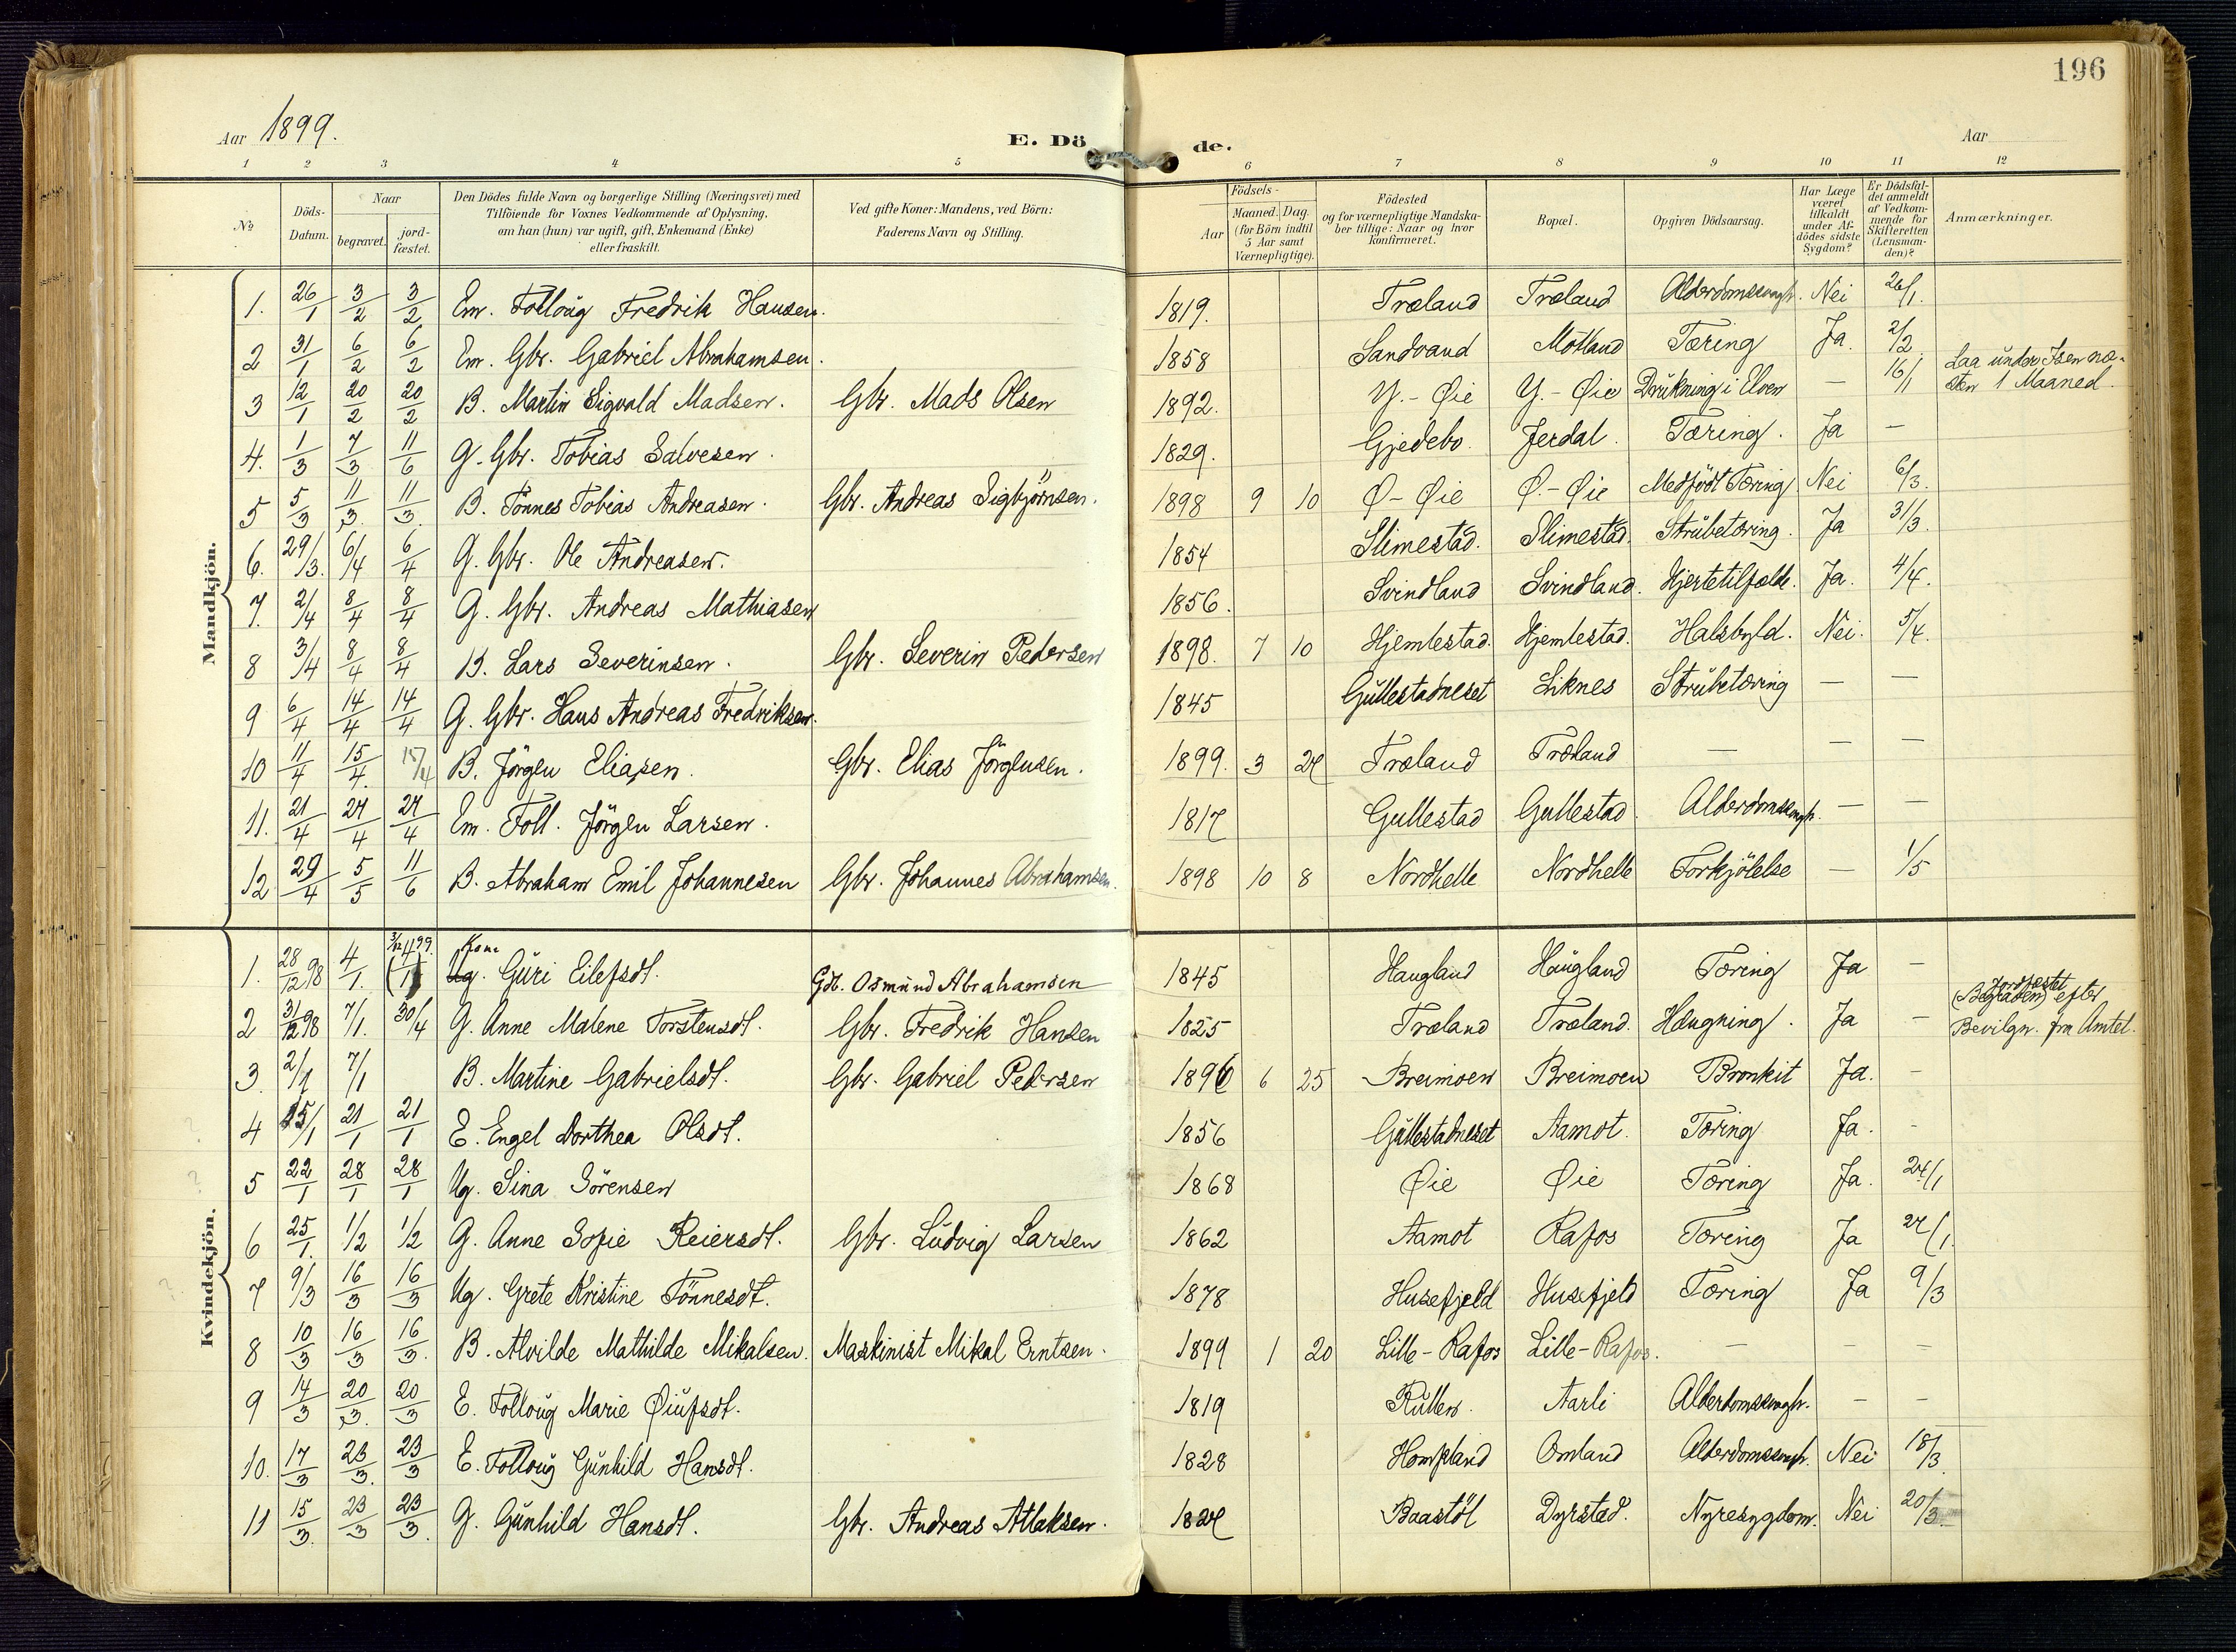 196
Aar 1899.
E. Dö de.
Aar
1 2 3 4 5 6 7 8 9 10 11 12
No
Döds-Datum.
Naar
begravet.
jord-fæstet.
Den Dödes fulde Navn og borgerlige Stilling (Næringsvei) med
Tilföiende for Voxnes Vedkommende af Oplysning,
om han (hun) var ugift, gift, Enkemand (Enke)
eller fraskilt.
Ved gifte Koner: Mandens, ved Börn:
Faderens Navn og Stilling.
Födsels-
Aar
Maaned. Dag
(for Börn indtil
5 Aar samt
Værnepligtige).
Födested
og for værnepligtige Mandska-
ber tillige: Naar og hvor
konfirmeret.
Bopæl.
Opgiven Dödsaarsag.
Har Læge
været
tilkaldt
under Af-
dödes sidste
Sygdom?
Er Dödsfal-
det anmeldt
af Vedkom-
mende for
Skifteretten
(Lensman-
den)?
Anmærkninger.
Mandkjön.
1. 26/1 3/2 3/2 Em. Folloug Fredrik Hansen. 1819. Træland Træland Alderdomssvagh. Nei 26/1.
2 31/1 6/2 6/2 Em. Gbr. Gabriel Abrahamsen. 1858 Sandvand Motland Tæring Ja. 2/2
3 12/1 20/2 20/2 B. Martin Sigvald Madsen. Gbr. Mads Olsen 1892. Y.-Øie Y.-Øie Drukning i Elven — 16/1 Laa under Isen næ-
sten 1 Maaned.
4. 1/3 7/3 11/6 G. Gbr. Tobias Salvesen. 1829. Gjedebo. Jerdal. Tæring. Ja —
5 5/3 11/3. 11/3. B. Tönnes Tobias Andreasen. Gbr. Andreas Sigbjörnsen. 1898 9 10 Ø-Øie Ø.-Øie Medfödt Tæring Nei 6/3.
6. 29/3. 6/4 6/4 G. Gbr. Ole Andreasen. 1854 Slimestad. Slimestad. Strubetæring. Ja 31/3.
7. 2/4 8/4 8/4 G. Gbr. Andreas Mathiasen 1856. Svindland Svindland. Hjertetilfælde. Ja. 4/4.
8 3/4 8/4 8/4 B. Lars Severinsen. Gbr. Severin Pedersen 1898. 7 10 Hjemlestad. Hjemlestad. Halsbyld. Nei. 5/4.
9 6/4 14/4 14/4 G. Gbr. Hans Andreas Fredriksen. 1845 Gullestadneset Liknes Strubetæring — —
10 11/4 15/4. 15/4 B. Jörgen Eliasen. Gbr. Elias Jörgensen. 1899. 3 27 Træland Træland — — —
11. 21/4 27/4 27/4 Em. Foll. Jörgen Larsen. 1817 Gullestad Gullestad Alderdomssvagh. — —
12 29/4 5/5 11/6 B. Abraham Emil Johannesen Gbr. Johannes Abrahamsen. 1898 10 8 Nordhelle Nordhelle Forkjölelse — 1/5
Kvindekjön.
1. 28/12 98 4/1. Kone Ug. Guri Eilefsdt. Gdb. Osmund Abrahamsen 1845 Haugland Haugland Tæring Ja —
2 31/12 98 7/1. 30/4 G. Anne Malene Torstensdt. Gbr. Fredrik Hansen 1825 Træland Træland. Hængning. Ja — Jordfæstet
(Begraven) efter
Bevilgn. fra Amtet.
3. 2/1 7/1 B. Martine Gabrielsdt. Gbr. Gabriel Pedersen 1896 6 25 Breimoen Breimoen Bronkit Ja. -
4 15/1 21/1 21/1 E. Engel Dorthea Olsdt. 1856 Gullestadneset Aamot. Tæring Ja. -
5 22/1 28/1 28/1 Ug. Sina Sörensen 1868 Øie Øie Tæring Ja. 24/1
6 25/1. 1/2 1/2 G. Anne Sofie Reiersdt. Gbr. Ludvig Larsen 1862 Aamot Rafos Tæring Ja 27/1.
7 9/3 16/3 16/3 Ug. Grete Kristine Tönnesdt. 1878 Husefjeld Husefjeld Tæring Ja 9/3
8 10/3 16/3 16/3. B. Alvilde Mathilde Mikalsen. Maskinist Mikal Erntsen. 1899 1 20 Lille-Rafos Lille-Rafos. — — —
9 14/3 20/3. 20/3 E. Folloug Marie Øiufsdt. 1819 Rullen. Aarli Alderdomssvagh. — —
10. 17/3 23/3. 23/3 E. Folloug Gunhild Hansdt. 1828 Hompland Omland Alderdomssvagh. Nei 18/3.
11 15/3. 23/3 23/3. G. Gunhild Hansdt. Gbr. Andreas Atlaksen. 1827 Baastöl Dyrstad. Nyresygdom. Nei 20/3.